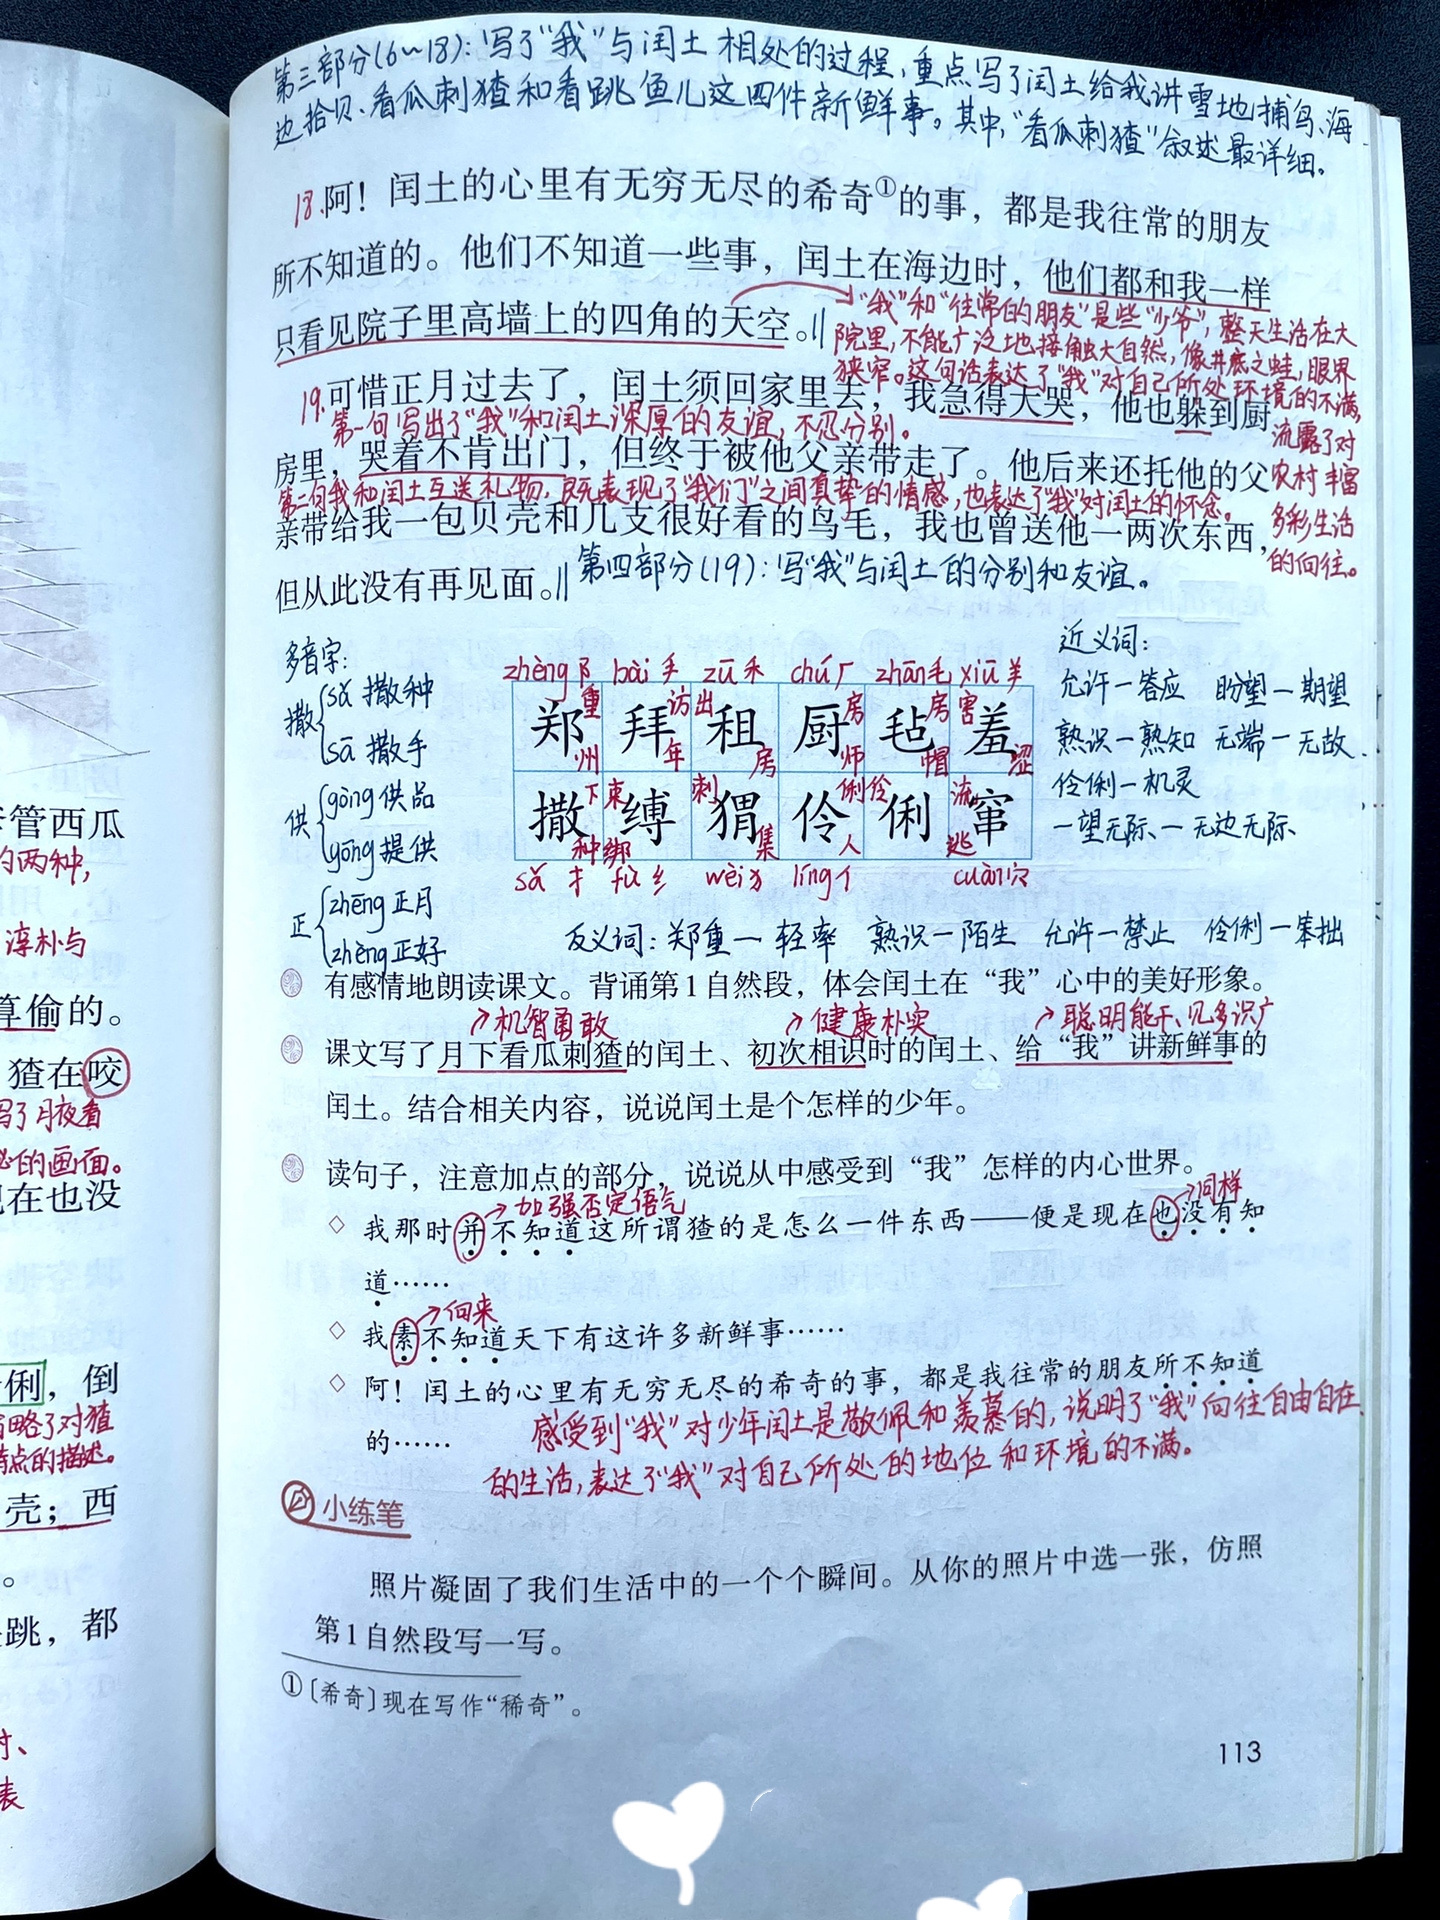 第三部分(6~18):写了“我”与闰土相处的过程,重点写了闰土给我讲雪地捕鸟、海
边拾贝、看瓜刺猹和看跳鱼儿这四件新鲜事。其中,“看瓜刺猹”叙述最详细。
18.阿！闰土的心里有无穷无尽的希奇①的事，都是我往常的朋友
所不知道的。他们不知道一些事，闰土在海边时，他们都和我一样
只看见院子里高墙上的四角的天空。||
“我”和“往常的朋友”是些“少爷”,整天生活在大
院里,不能广泛地接触大自然,像井底之蛙,眼界
狭窄。这句话表达了“我”对自己所处环境的不满,
流露了对
农村丰富
多彩生活
的向往。
19.可惜正月过去了，闰土须回家里去，我急得大哭，他也躲到厨
第一句写出了“我”和闰土深厚的友谊,不忍分别。
房里，哭着不肯出门，但终于被他父亲带走了。他后来还托他的父
第二句我和闰土互送礼物,既表现了“我们”之间真挚的情感,也表达了“我”对闰土的怀念。
亲带给我一包贝壳和几支很好看的鸟毛，我也曾送他一两次东西，
但从此没有再见面。||
第四部分(19):写“我”与闰土的分别和友谊。
多音字:
撒
sǎ 撒种
sā 撒手
供
gòng 供品
gōng 提供
正
zhēng 正月
zhèng 正好
zhèng阝 bài手 zū禾 chú厂 zhān毛 xiū羊
郑 拜 租 厨 毡 羞
重 访 出 房 房 害
州 年 房 师 帽 涩
撒 缚 猬 伶 俐 窜
下 束 刺 俐 伶 流
种 绑 集 人 逃
sǎ扌 fù纟 wèi犭 líng亻 cuàn穴
近义词:
允许—答应 盼望—期望
熟识—熟知 无端—无故
伶俐—机灵
一望无际—无边无际
反义词:郑重—轻率 熟识—陌生 允许—禁止 伶俐—笨拙
有感情地朗读课文。背诵第1自然段，体会闰土在“我”心中的美好形象。
机智勇敢 健康朴实 聪明能干、见多识广
课文写了月下看瓜刺猹的闰土、初次相识时的闰土、给“我”讲新鲜事的
闰土。结合相关内容，说说闰土是个怎样的少年。
读句子，注意加点的部分，说说从中感受到“我”怎样的内心世界。
加强否定语气 同样
◇ 我那时并不知道这所谓猹的是怎么一件东西——便是现在也没有知
道……
向来
◇ 我素不知道天下有这许多新鲜事……
◇ 阿！闰土的心里有无穷无尽的希奇的事，都是我往常的朋友所不知道
的……
感受到“我”对少年闰土是敬佩和羡慕的,说明了“我”向往自由自在
的生活,表达了“我”对自己所处的地位和环境的不满。
小练笔
照片凝固了我们生活中的一个个瞬间。从你的照片中选一张，仿照
第1自然段写一写。
①〔希奇〕现在写作“稀奇”。
113
管西瓜
的两种,
淳朴与
算偷的。
猹在咬
写了月夜看
的画面。
现在也没
俐，倒
省略了对猹
特点的描述。
壳；西
。
跳，都
时、
表